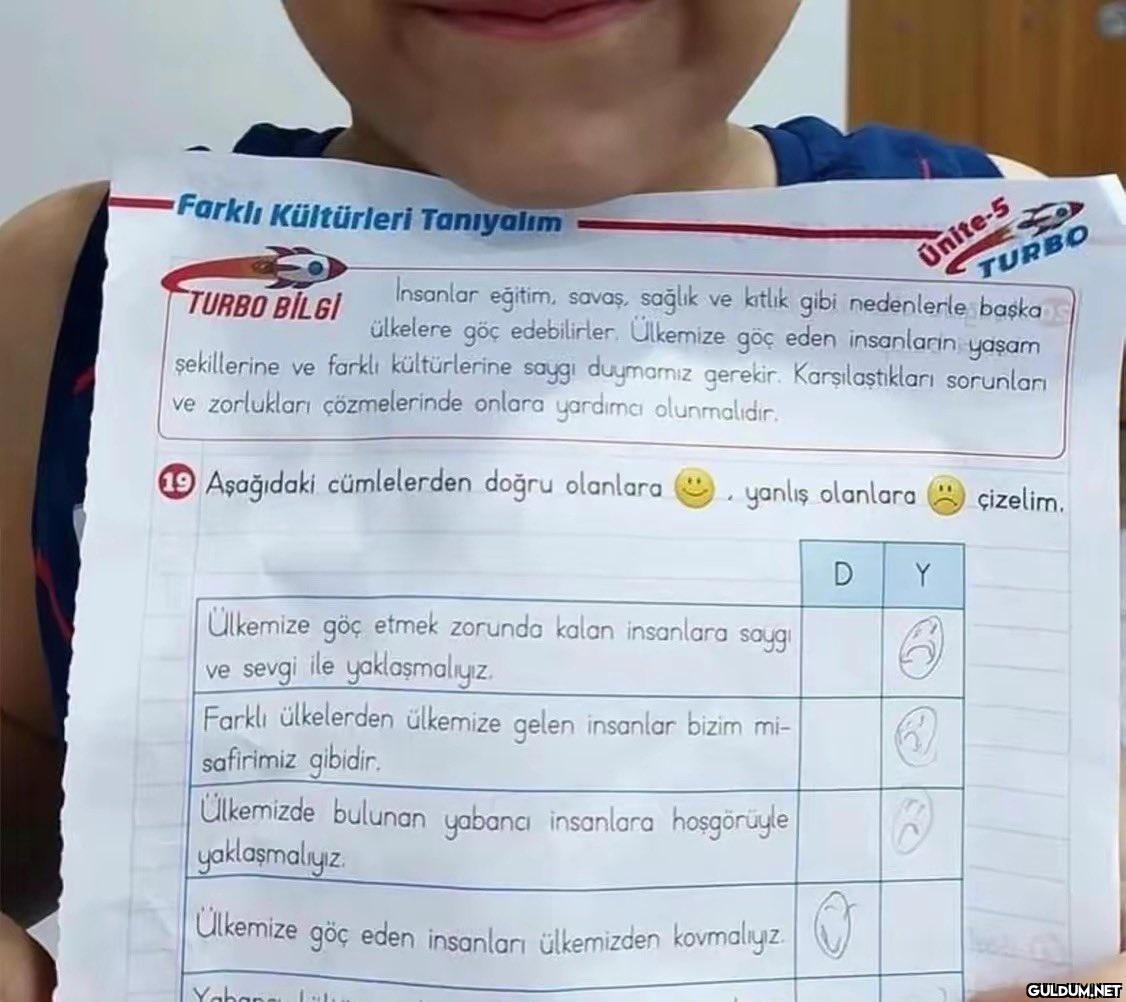 Farklı Kültürleri Tanıyalım
Ünite-5
TURBO
TURBO BİLGİ
İnsanlar eğitim, savaş, sağlık ve kıtlık gibi nedenlerle başka
ülkelere göç edebilirler. Ülkemize göç eden insanların yaşam
şekillerine ve farklı kültürlerine saygı duymamız gerekir. Karşılaştıkları sorunları
ve zorlukları çözmelerinde onlara yardımcı olunmalıdır.
19 Aşağıdaki cümlelerden doğru olanlara 🙂 , yanlış olanlara ☹️ çizelim.
D Y
Ülkemize göç etmek zorunda kalan insanlara saygı
ve sevgi ile yaklaşmalıyız.
Farklı ülkelerden ülkemize gelen insanlar bizim mi-
safirimiz gibidir.
Ülkemizde bulunan yabancı insanlara hoşgörüyle
yaklaşmalıyız.
Ülkemize göç eden insanları ülkemizden kovmalıyız.
GULDUM.NET